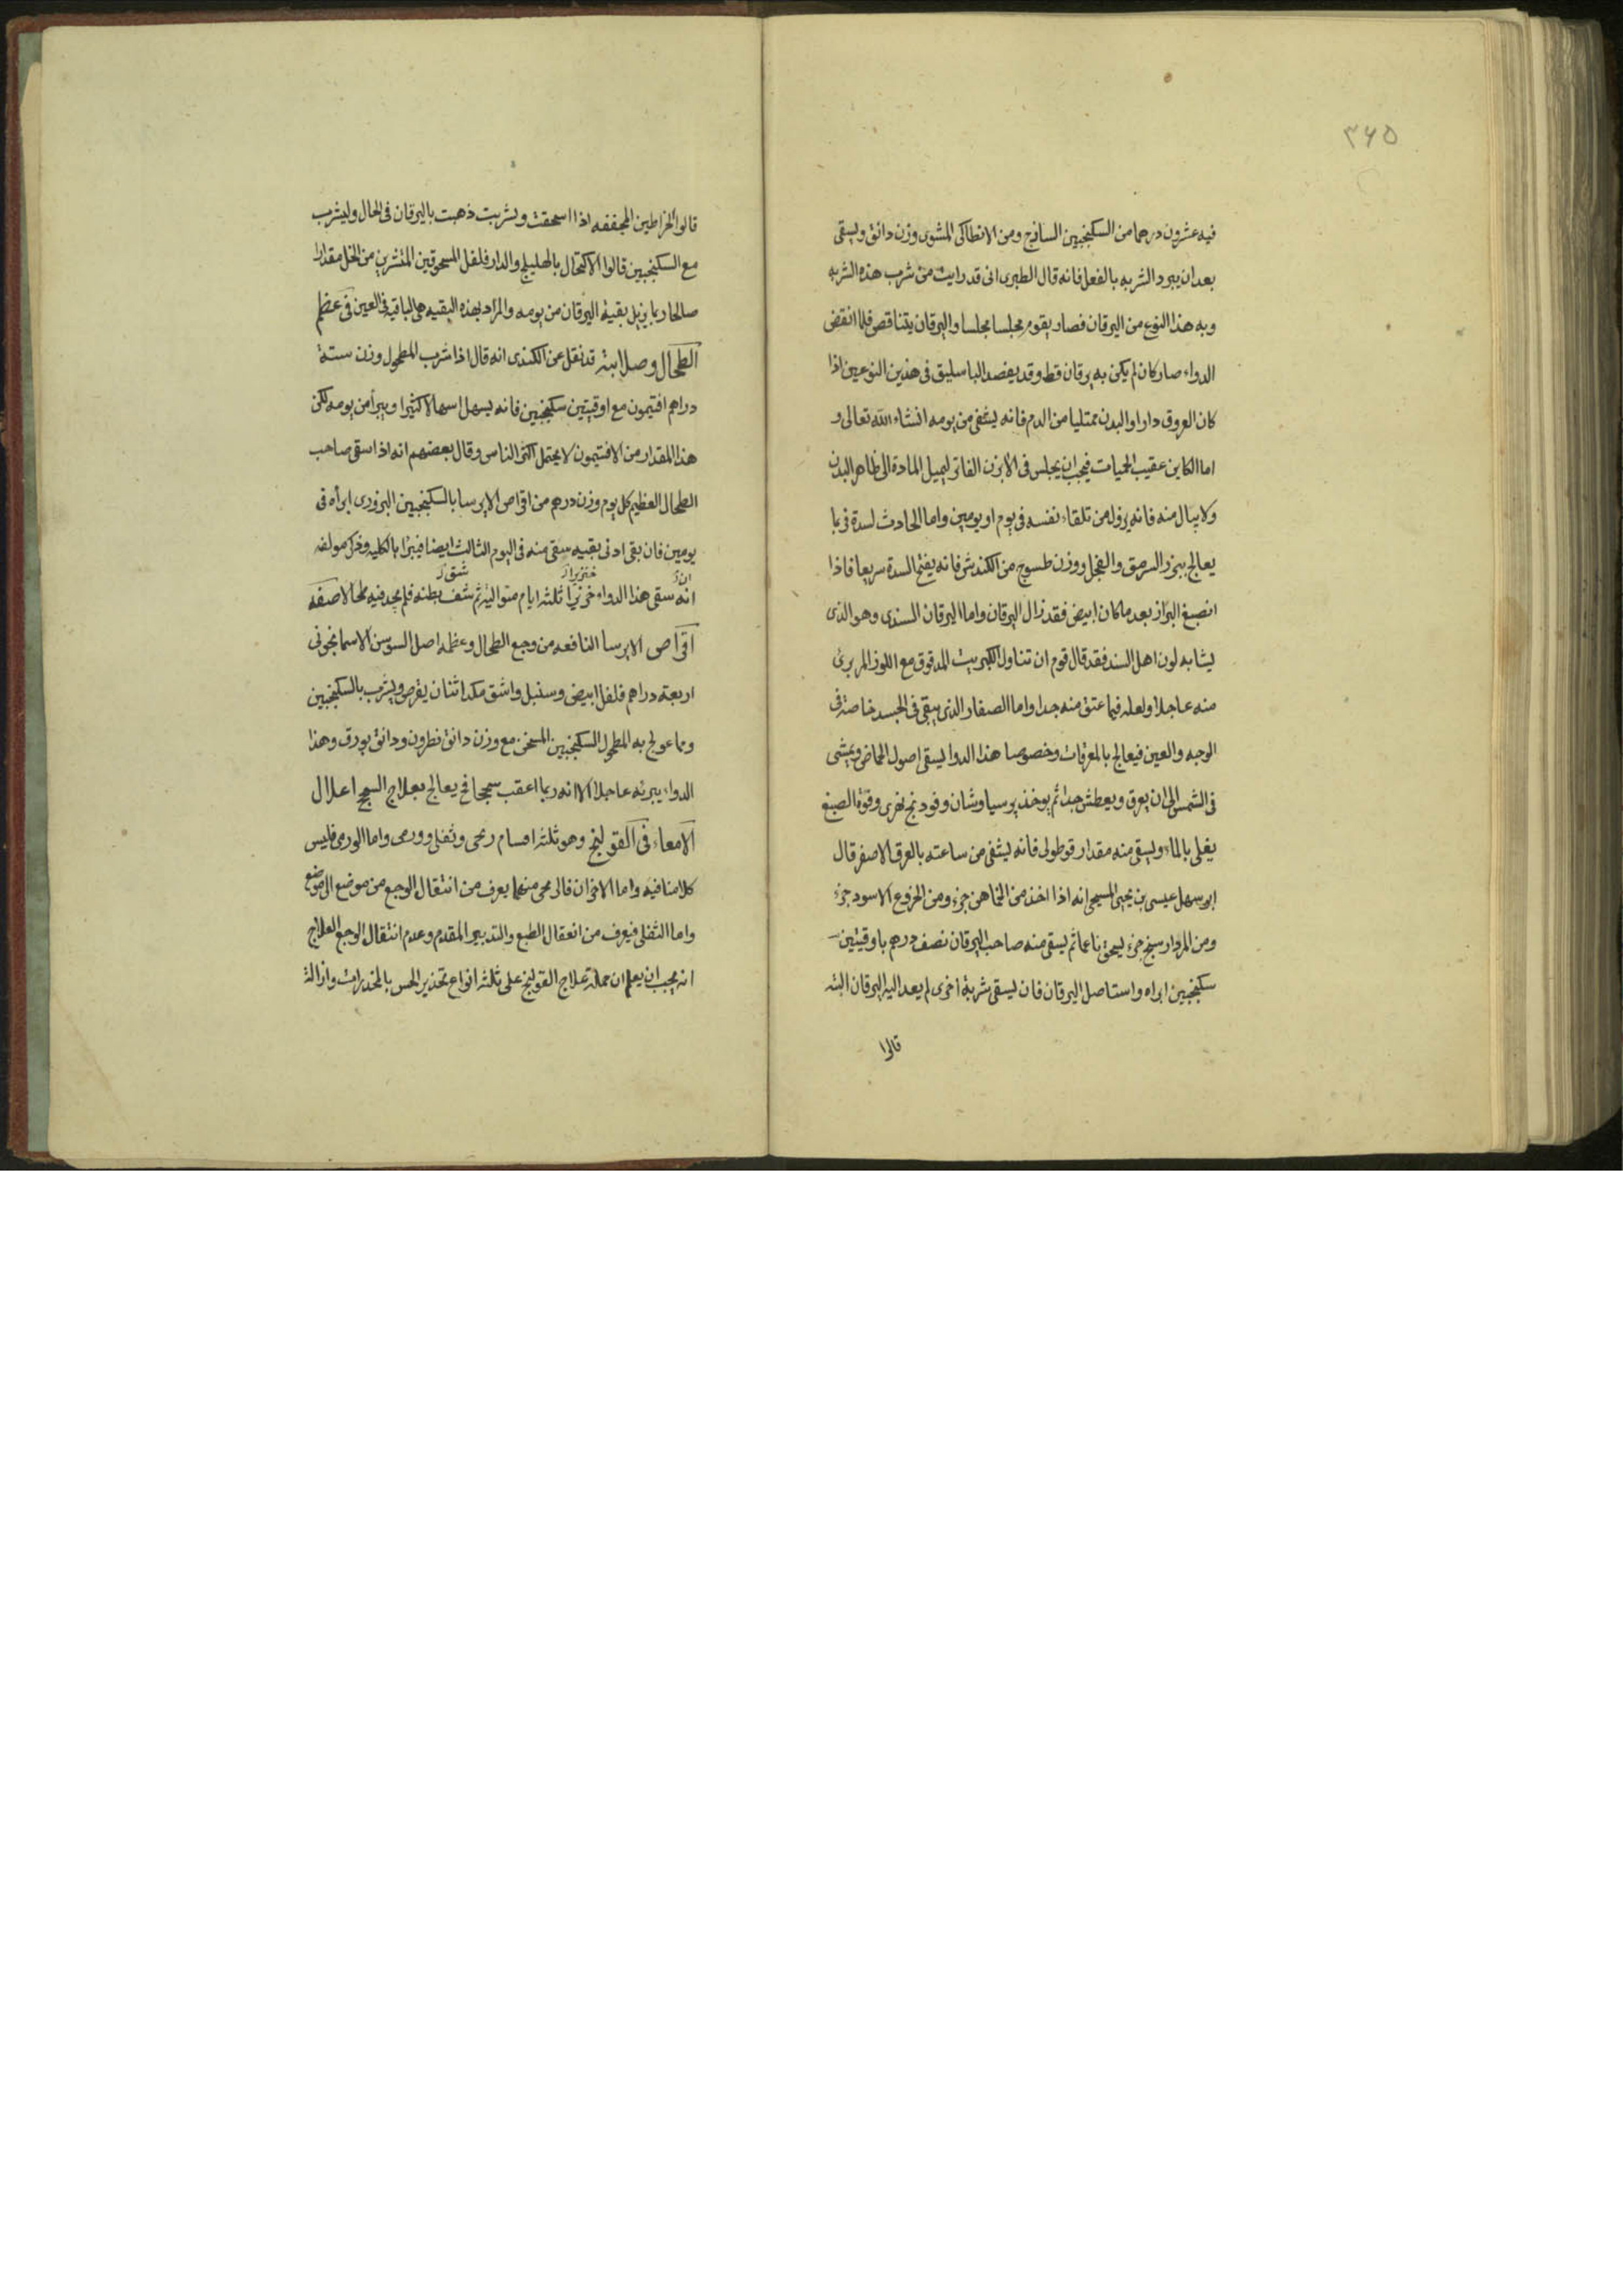 ٣٤٥
فيه عشرون درهما من السكنجبين الساذج ومن الانطاكى المشوى وزن دانق ويسقى
بعد ان يبرد الشربه بالفعل فانه قال الطبرى انى قد رايت من شرب هذه الشربه
وبه هذا النوع من اليرقان فصار يقوم مجلسا مجلسا واليرقان يتناقص فلما انقض
الدواء صار كان لم يكن به يرقان قط وقد يفصد الباسليق فى هذين النوعين اذا
كان العروق دارا والبدن ممتليا من الدم فانه يشفى من يومه انشاء الله تعالى و
اما الكاين عقيب الحميات فيجب ان يجلس فى الابزن الفاتر ليميل المادة الى ظاهر البدن
ولا يبال منه فانه يزول من تلقاء نفسه فى يوم او يومين واما الحادث لسدة فربما
يعالج ببزر السرمق والفجل ووزن طسوج من الكندش فانه يفتح السدة سريعا فاذا
انصبغ البراز بعد ما كان ابيض فقد زال اليرقان واما اليرقان السندى وهو الذى
يشابه لون اهل السند فقد قال قوم ان تناول الكبريت المدقوق مع اللوز المر يبرئ
منه عاجلا ولعله فيما عتق منه جدا واما الصفار الذى يبقى فى الجسد خاصة فى
الوجه والعين فيعالج بالمعرقات وخصوصا هذا الدوا يسقى اصول الحماض ويمشى
فى الشمس الى ان يعرق ويعطش جدا ثم يوخذ پرسياوشان وفودنج نهرى وقوة الصبغ
يغلى بالماء ويسقى منه مقدار قوطولى فانه يشفى من ساعته بالعرق الاصفر قال
ابو سهل عيسى بن يحيى المسيحى انه اذا اخذ من الخماهن جزء ومن الخروع الاسود جزء
ومن المردارسنج جزء يسحق ناعما ثم يسقى منه صاحب اليرقان نصف درهم باوقيتين
سكنجبين ابراه واستاصل اليرقان فان يسقى شربة اخرى لم يعد اليه اليرقان البته
قالوا
قالوا الخراطين المجففه اذا اسحقت وشربت ذهبت باليرقان فى الحال وليشرب
مع السكنجبين قالوا الاكتحال بالهليلج والدارفلفل المسحوقين المنشربن من الخل مقدارا
صالحا ربما يزيل بقية اليرقان من يومه والمراد بهذه البقيه هى الباقيه فى العين فى عظم
الطحال وصلابته قد نقل عن الكندى انه قال اذا شرب المطحول وزن ستة
دراهم افتيمون مع اوقيتين سكنجبين فانه يسهل اسهالا كثيرا ويبرأ من يومه لكن
هذا المقدار من الافتيمون لا يحتمل اكثر الناس وقال بعضهم انه اذا سقى صاحب
الطحال العظيم كل يوم وزن درهم من اقراص الايرسا بالسكنجبين البزورى ابرأه فى
يومين فان بقى ادنى بقيه سقى منه فى اليوم الثالث ايضا فيبرأ بالكليه وذكر مولفه
خنزيرا شق
انه سقى هذا الدواء ثلثه ايام متواليه ثم بطنه فلم يجد فيه طحالا صفة
اقراص الايرسا النافعه من وجع الطحال وعظمه اصل السوسن الاسمانجونى
اربعة دراهم فلفل ابيض وسنبل واشق مكدا ثنان يقرص ويشرب بالسكنجبين
ومما عولج به المطحول السكنجبين المسخن مع وزن دانق نطرون ودانق بورق وهذا
الدواء يبرئه عاجلا الا انه ربما اعقب سحجا فح يعالج بعلاج السحج اعلال
الامعاء فى القولنج وهو ثلثه اقسام ريحى وثفلى وورمى واما الورمى فليس
كلامنا فيه واما الاخران فالريحى منهما يعرف من انتقال الوجع من موضع الى موضع
واما الثفلى فيعرف من انعقال الطبع والتدبير المقدم وعدم انتقال الوجع العلاج
انه يجب ان يعلم ان جملة علاج القولنج على ثلثه انواع تخذير الحس بالمخدرات وازالة